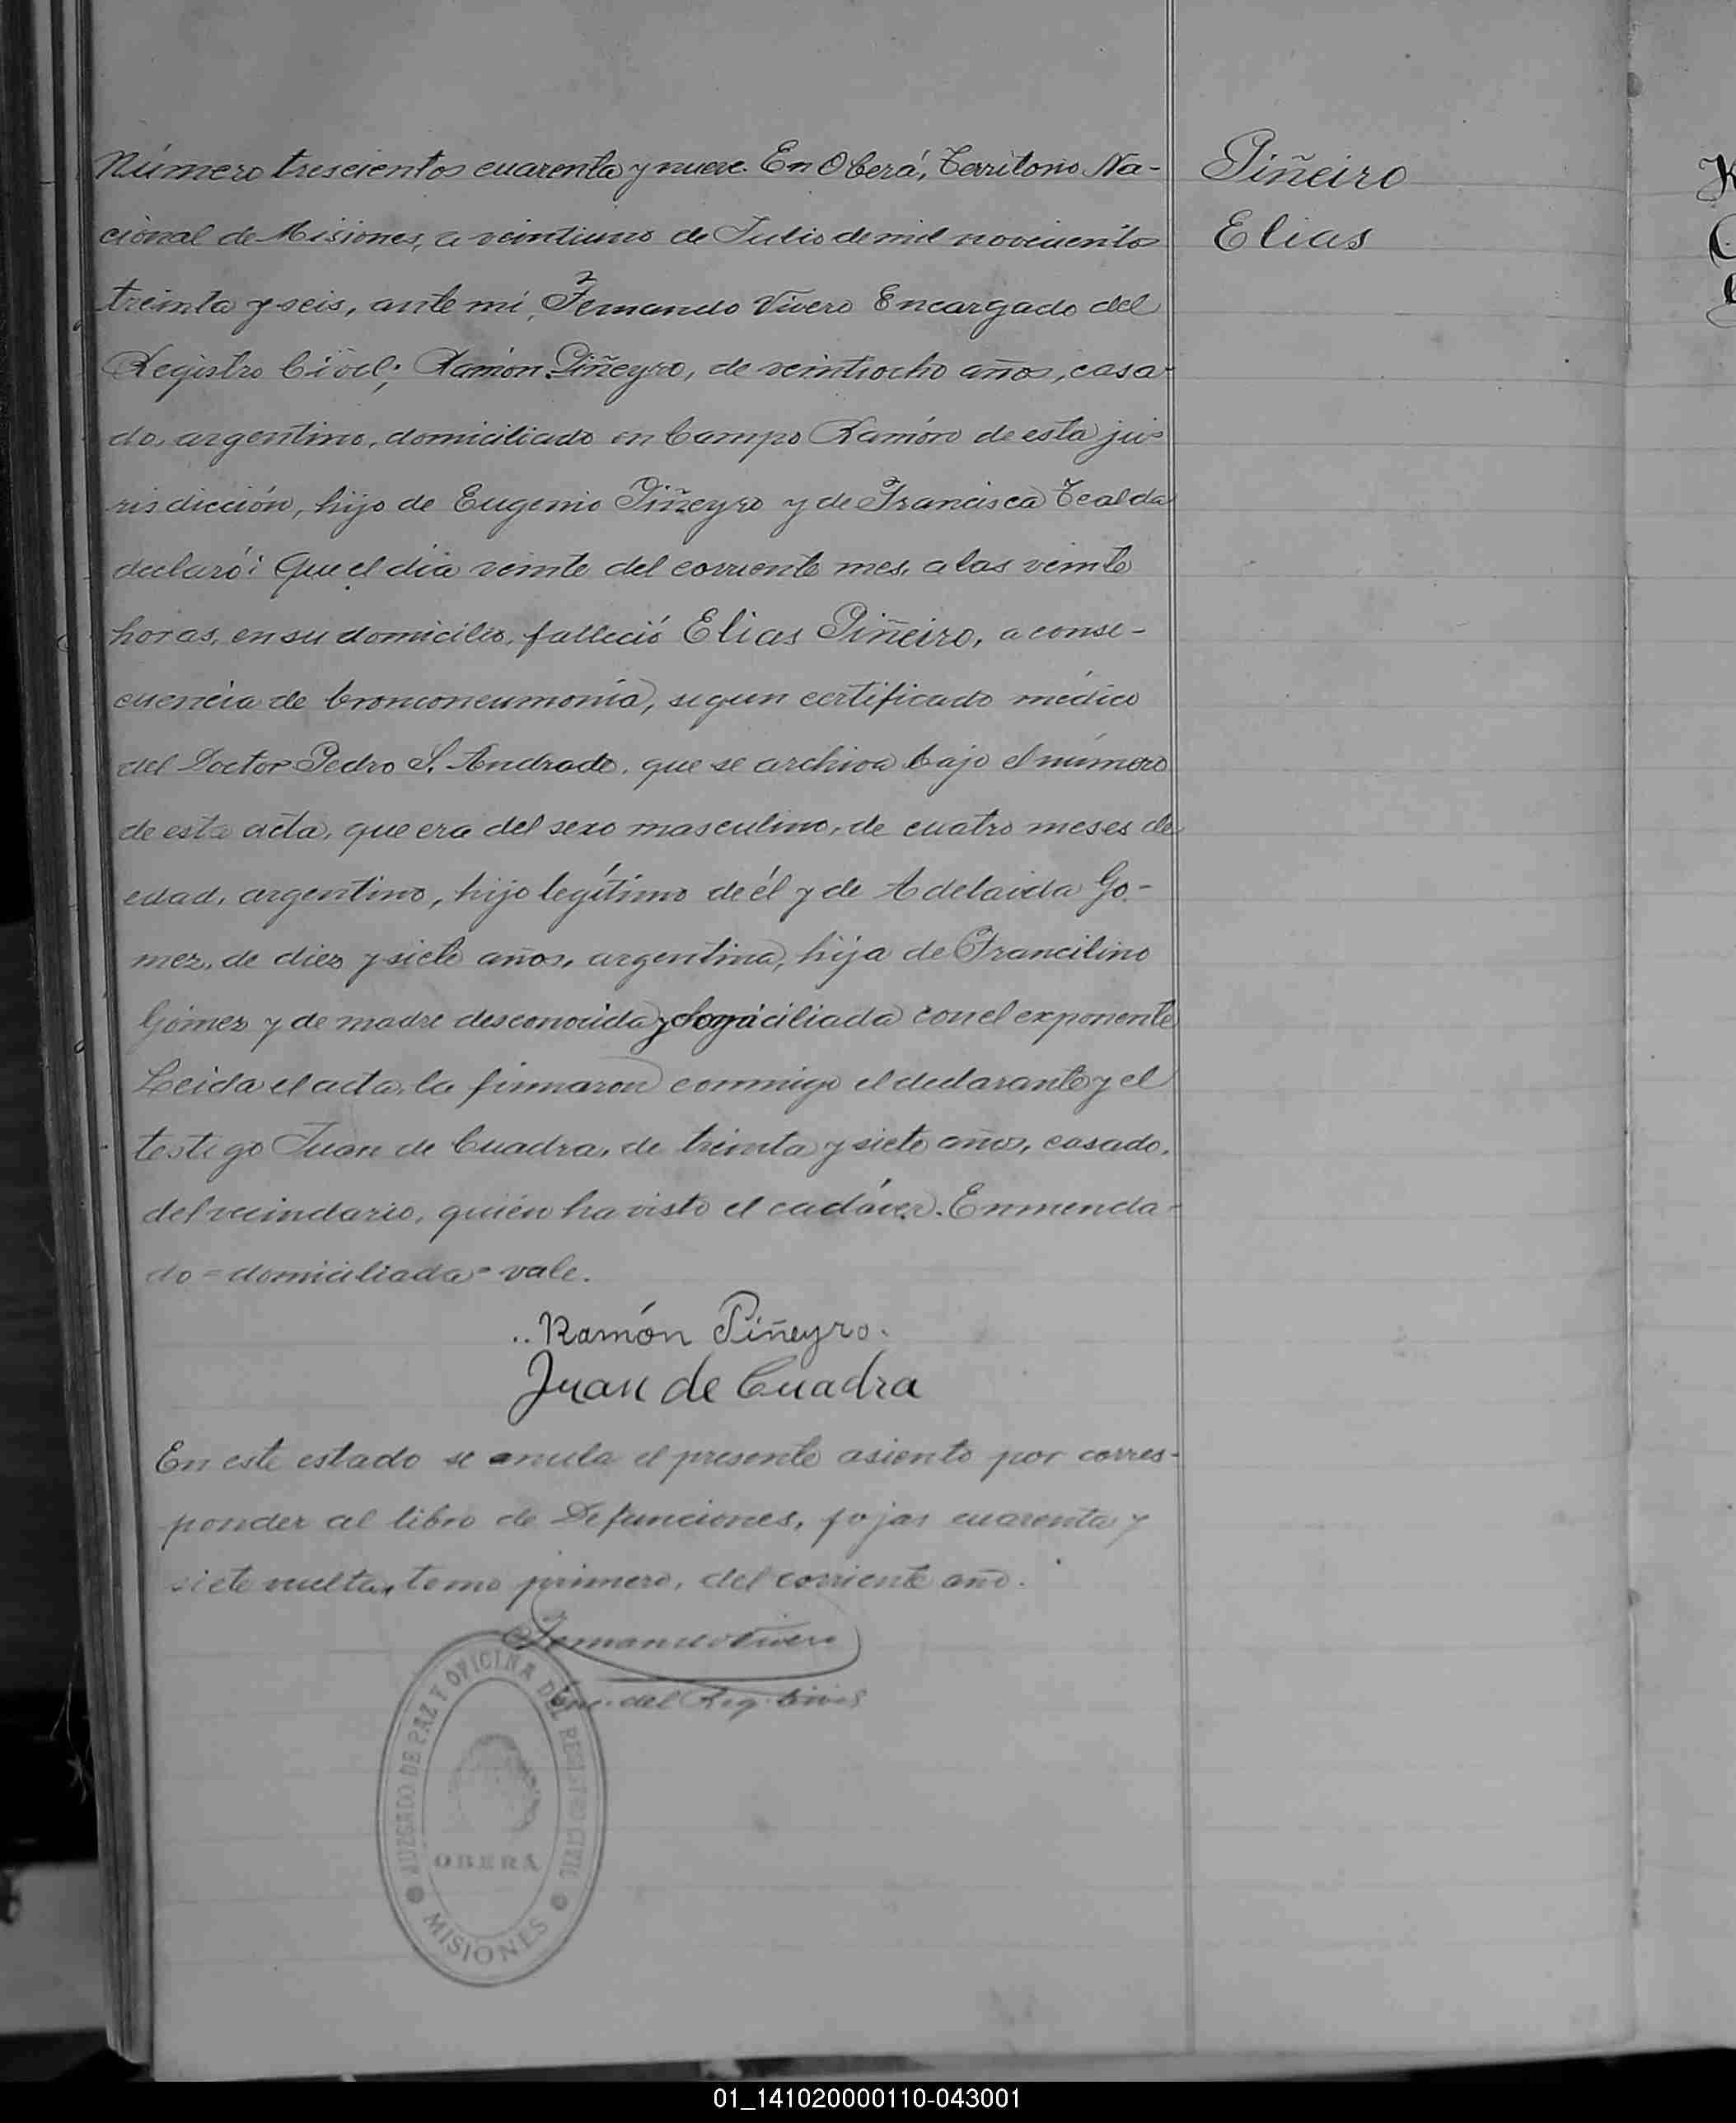 Número trescientos cuarenta y nueve. En Oberá, Territorio Na-
cional de Misiones, a veintiuno de Julio de mil novecientos
treinta y seis, ante mi, Fernando Vivero Encargado del
Registro Civil; Ramón Piñeyro, de veintiocho años, casa-
do, argentino, domiciliado en Campo Ramón de esta ju-
risdicción, hijo de Eugenio Piñeyro y de Francisca Tealda
declaró: Que el día veinte del corriente mes, a las veinte
horas, en su domicilio, falleció Elias Piñeiro, a conse-
cuencia de bronconeumonía, segun certificado médico
del Doctor Pedro S. Andrade, que se archiva bajo el número
de esta acta, que era del sexo masculino, de cuatro meses de
edad, argentino, hijo legítimo de él y de Adelaida Go-
mez, de diez y siete años, argentina, hija de Francilino
Gómez y de madre desconocida y domiciliada con el exponente
Leida el acta, la firmaron conmigo el declarante y el
testigo Juan de Cuadra, de treinta y siete años, casado,
del vecindario, quién ha visto el cadáver. Enmenda-
do = domiciliada = vale.
Ramón Piñeyro.
Juan de Cuadra
En este estado se anula el presente asiento por corres-
ponder al libro de Defunciones, fojas cuarenta y
siete vuelta, tomo primero, del corriente año.
Fernando Vivero
Enc. del Reg. Civil
JUZGADO DE PAZ Y OFICINA DEL REGISTRO CIVIL
OBERÁ
MISIONES
Piñeiro
Elias
01_141020000110-043001